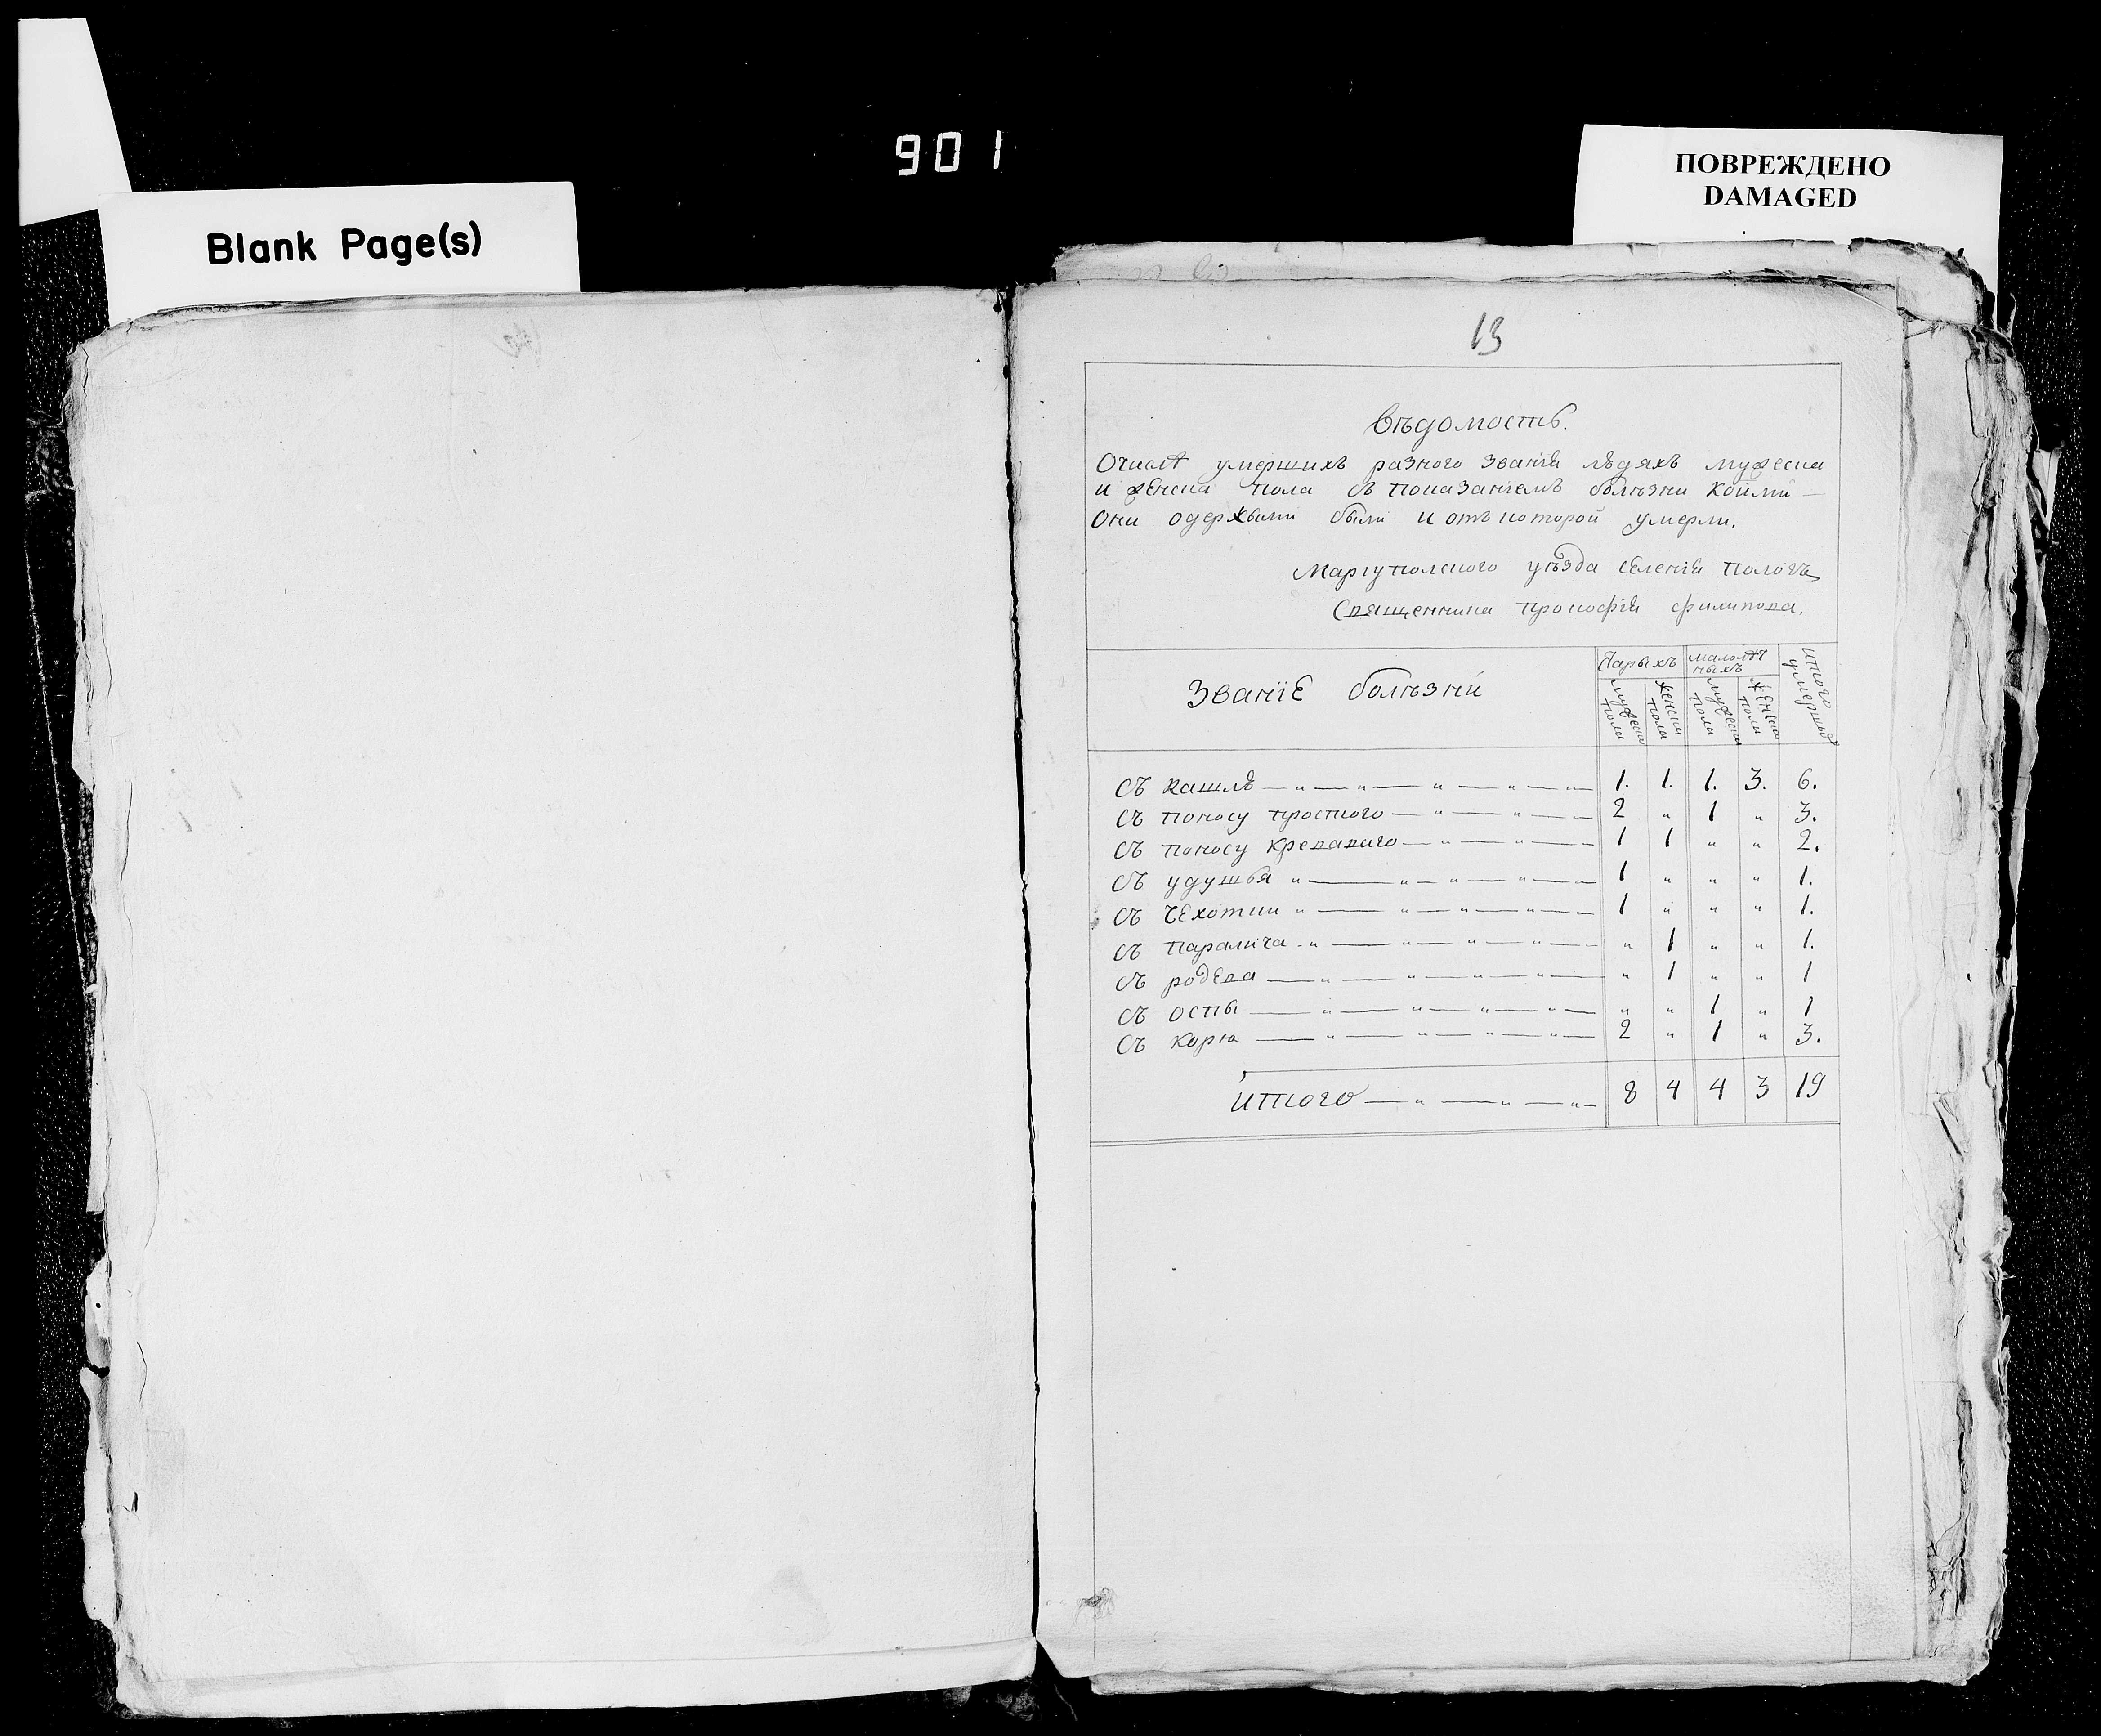 901
ПОВРЕЖДЕНО
DAMAGED
Blank Page(s)
13
Вѣдомость.
Очислѣ умершихъ разного званія людяхъ мужеска
и женска пола съ показаніемъ болѣзни коими
они одержыми были и отъ которой умерли.
Маріуполского уѣзда селенія Пологъ
Священника Прокофія Филипова.
Званіе болѣзни
Старыхъ
малолѣт
ныхъ
итого умершыхъ
мужеска пола
женска пола
мужеска пола
женска пола
съ кашлю — „ — „ — „ — „ — „ — 1. 1. 1. 3. 6.
съ поносу простого — „ — „ — 2 „ 1 „ 3.
съ поносу креваваго — „ — „ — 1 1 „ „ 2.
съ удушья „ — „ — „ — „ — „ — 1 „ „ „ 1.
съ чехотки „ — „ — „ — „ — 1 „ „ „ 1.
съ паралича - „ — „ — „ — „ — „ 1 „ „ 1.
съ родева — „ — „ — „ — „ — „ 1 „ „ 1
съ оспы — „ — „ — „ — „ — „ „ 1 „ 1
съ корю — „ — „ — „ — „ — 2 „ 1 „ 3.
итого — „ — „ — „ — 8 4 4 3 19